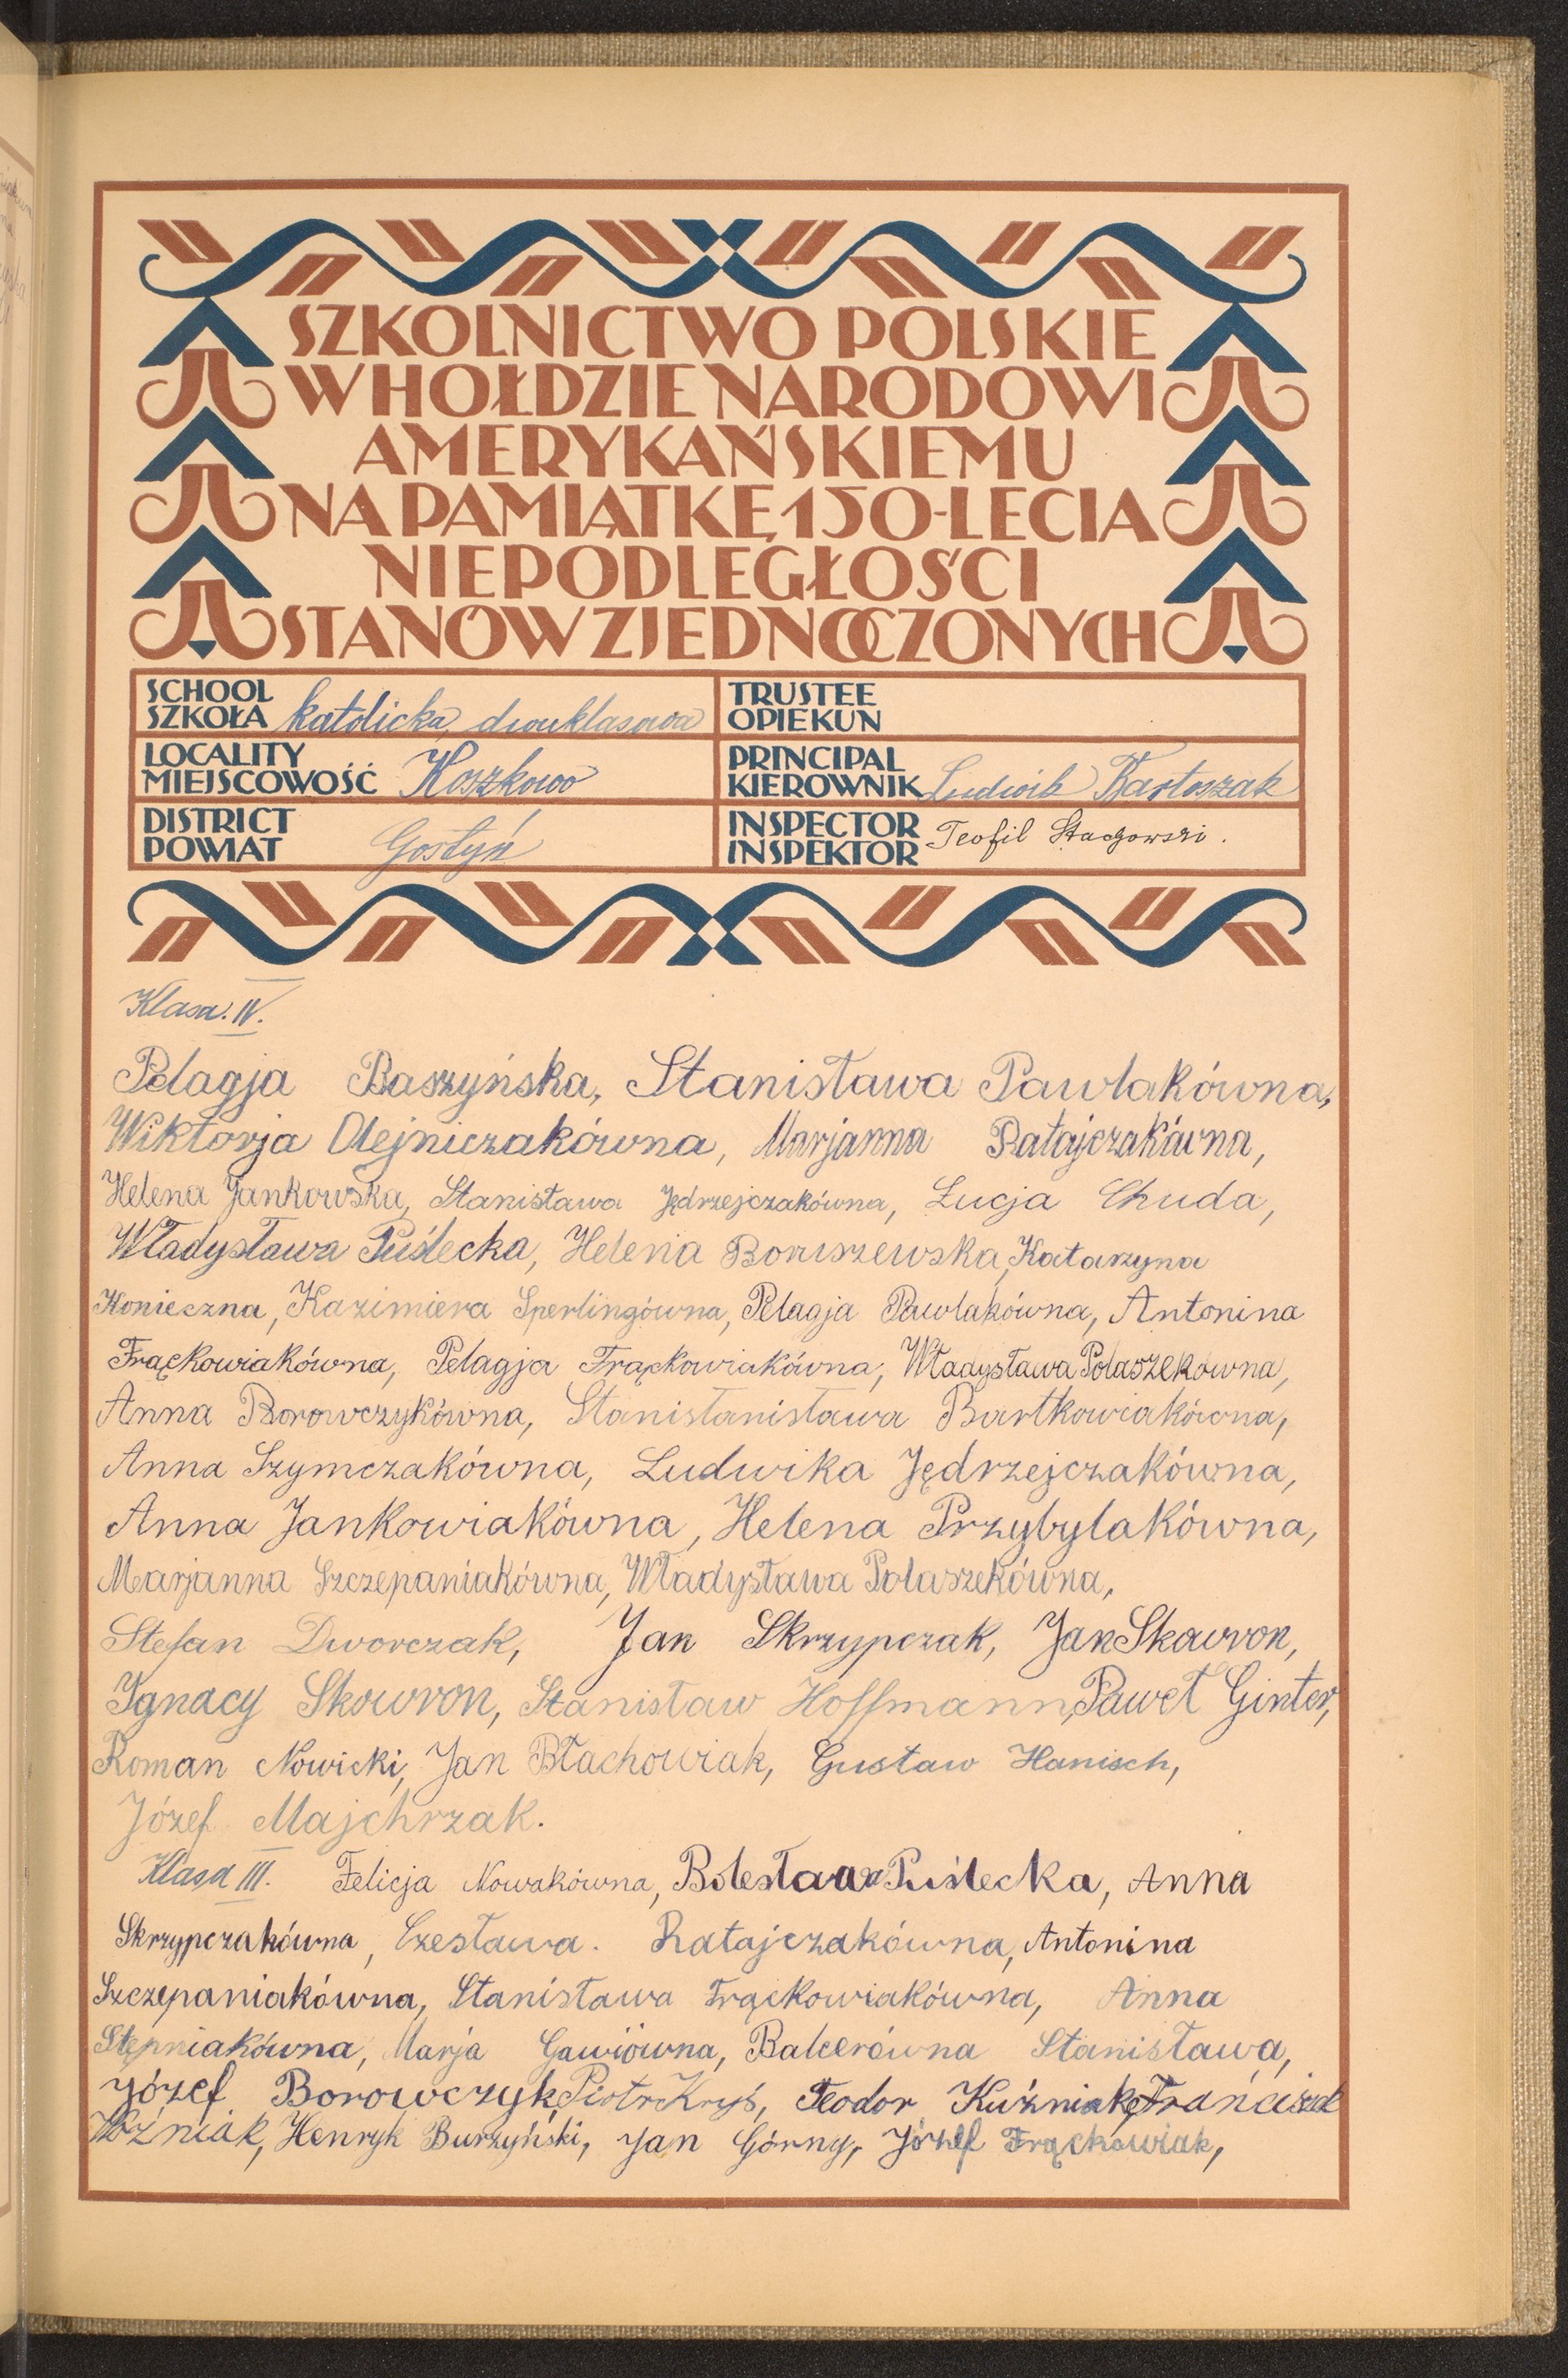 SZKOLNICTWO POLSKIE
W HOŁDZIE NARODOWI
AMERYKAŃSKIEMU
NA PAMIĄTKĘ 150-LECIA
NIEPODLEGŁOŚCI
STANÓW ZJEDNOCZONYCH
SCHOOL
SZKOŁA katolicka, dwuklasowa
TRUSTEE
OPIEKUN
LOCALITY
MIEJSCOWOŚĆ Koszkowo
PRINCIPAL
KIEROWNIK Ludwik Bartoszak
DISTRICT
POWIAT Gostyń
INSPECTOR
INSPEKTOR Teofil
Klasa. IV.
Pelagja Baszyńska, Stanisława Pawlakówna,
Wiktorja Olejniczakówna, Marjanna Ratajczakówna,
Helena Jankowska, Stanisława Jędrzejczakówna, Łucja Chuda,
Władysława Puślecka, Helena Boruszewska, Katarzyna
Konieczna, Kazimiera Sperlingówna, Pelagja Pawlakówna, Antonina
Frąckowiakówna, Pelagja Frąckowiakówna, Władysława Polaszekówna,
Anna Borowczykówna, Stanistanisława Bartkowiakówna,
Anna Szymczakówna, Ludwika Jędrzejczakówna,
Anna Jankowiakówna, Helena Przybylakówna,
Marjanna Szczepaniakówna, Władysława Polaszekówna,
Stefan Dworczak, Jan Skrzypczak, Jan Skowron,
Ignacy Skowron, Stanisław Hoffmann, Paweł Ginter,
Roman Nowicki, Jan Błachowiak, Gustaw Hanisch,
Józef Majchrzak.
Klasa III. Felicja Nowakówna, Bolesława Puślecka, Anna
Skrzypczakówna, Czesława. Ratajczakówna, Antonina
Szczepaniakówna, Stanisława Frąckowiakówna, Anna
Stępniakówna, Marja Gawiówna, Balcerówna Stanisława,
Józef Borowczyk Piotr Kryś, Teodor Kuźniak, Franciszek
Woźniak, Henryk Burzyński, Jan Górny, Józef Frąckowiak,